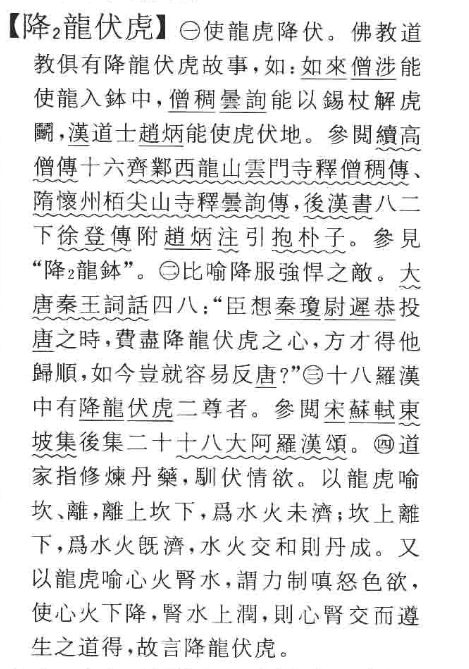 【降₂龍伏虎】㊀使龍虎降伏。佛教道
教俱有降龍伏虎故事，如：如來僧涉能
使龍入鉢中，僧稠曇詢能以錫杖解虎
鬭，漢道士趙炳能使虎伏地。參閱續高
僧傳十六齊鄴西龍山雲門寺釋僧稠傳、
隋懷州栢尖山寺釋曇詢傳，後漢書八二
下徐登傳附趙炳注引抱朴子。參見
“降₂龍鉢”。㊁比喻降服強悍之敵。大
唐秦王詞話四八：“臣想秦瓊尉遲恭投
唐之時，費盡降龍伏虎之心，方才得他
歸順，如今豈就容易反唐？”㊂十八羅漢
中有降龍伏虎二尊者。參閱宋蘇軾東
坡集後集二十十八大阿羅漢頌。㊃道
家指修煉丹藥，馴伏情欲。以龍虎喻
坎、離，離上坎下，爲水火未濟；坎上離
下，爲水火旣濟，水火交和則丹成。又
以龍虎喻心火腎水，謂力制嗔怒色欲，
使心火下降，腎水上潤，則心腎交而遵
生之道得，故言降龍伏虎。